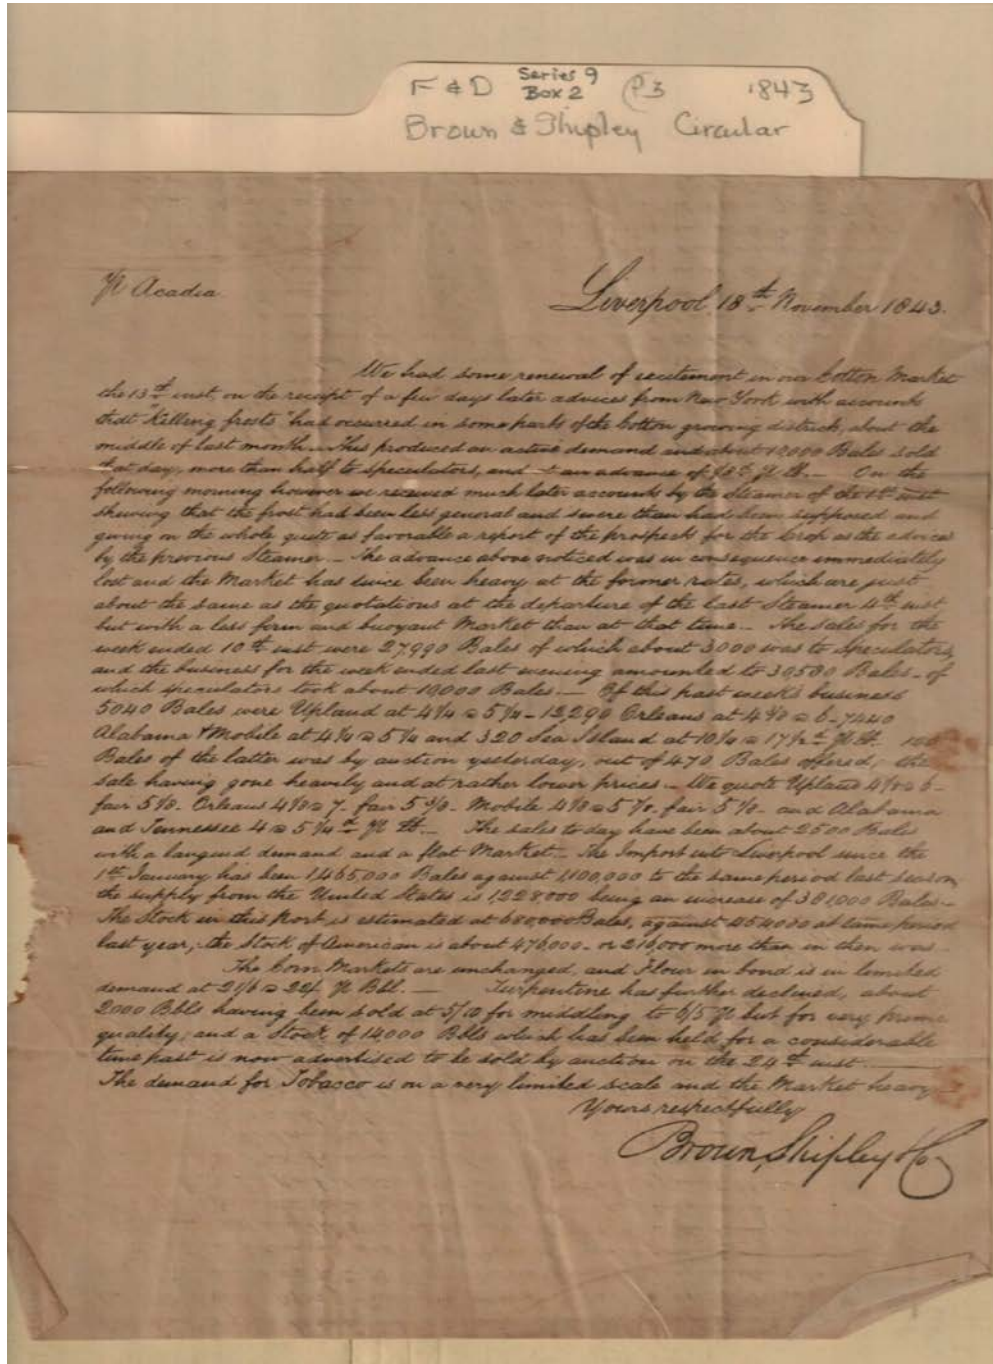 F & D Series 9 Box 2 P3 1843
Brown & Shipley Circular
Pr Acadia.
Liverpool, 18th November 1843.
We had some renewal of excitement in our Cotton Market
the 13th inst, on the receipt of a few days later advices from New York with accounts
that "Killing frosts" had occurred in some parts of the Cotton growing districts, about the
middle of last month. This produced an active demand and about 12,000 Bales sold
that day, more than half to speculators, and at an advance of 1/8th Pr lb. — On the
following morning however we received much later accounts by the Steamer of the 1st inst
shewing that the frost had been less general and severe than had been supposed and
giving on the whole quite as favorable a report of the prospects for the Crop as the advices
by the previous Steamer. — The advance above noticed was in consequence immediately
lost and the Market has since been heavy at the former rates, which are just
about the same as the quotations at the departure of the last Steamer 4th inst
but with a less firm and buoyant Market than at that time — The sales for the
week ended 10th inst were 27,990 Bales of which about 3000 was to Speculators,
and the business for the week ended last evening amounted to 30,580 Bales - of
which speculators took about 10,000 Bales. — Of this past week's business
5040 Bales were Upland at 4 1/4 @ 5 1/4 - 12,290 Orleans at 4 1/8 @ 6 - 7440
Alabama & Mobile at 4 1/4 @ 5 1/4 and 320 Sea Island at 10 1/4 @ 17 1/2d Pr lb.
Bales of the latter was by auction yesterday, out of 470 Bales offered, the
sale having gone heavily and at rather lower prices. — We quote Upland 4 1/8 @ 6 -
fair 5 1/8. Orleans 4 1/8 @ 7 - fair 5 3/8 - Mobile 4 1/8 @ 5 7/8, fair 5 1/8 - and Alabama
and Tennessee 4 @ 5 1/4d Pr lb. — The sales to day have been about 2500 Bales
with a languid demand and a flat Market — The Import into Liverpool since the
1st January has been 1,465,000 Bales against 1,100,000 to the same period last season,
the supply from the United States is 1,228,000 being an increase of 381,000 Bales —
The Stock in this Port is estimated at 680,000 Bales, against 454,000 at same period
last year, the Stock of American is about 476,000 - or 216,000 more than it then was —
The Corn Markets are unchanged, and Flour in bond is in limited
demand at 21/6 @ 22/ Pr Bbl. — Turpentine has further declined, about
2000 Bbls having been sold at 5/10 for middling to 6/5 Pr but for very prime
quality, and a Stock of 14,000 Bbls which has been held for a considerable
time past is now advertised to be sold by auction on the 24th inst. —
The demand for Tobacco is on a very limited scale and the Market heavy
Yours respectfully
Brown, Shipley & Co